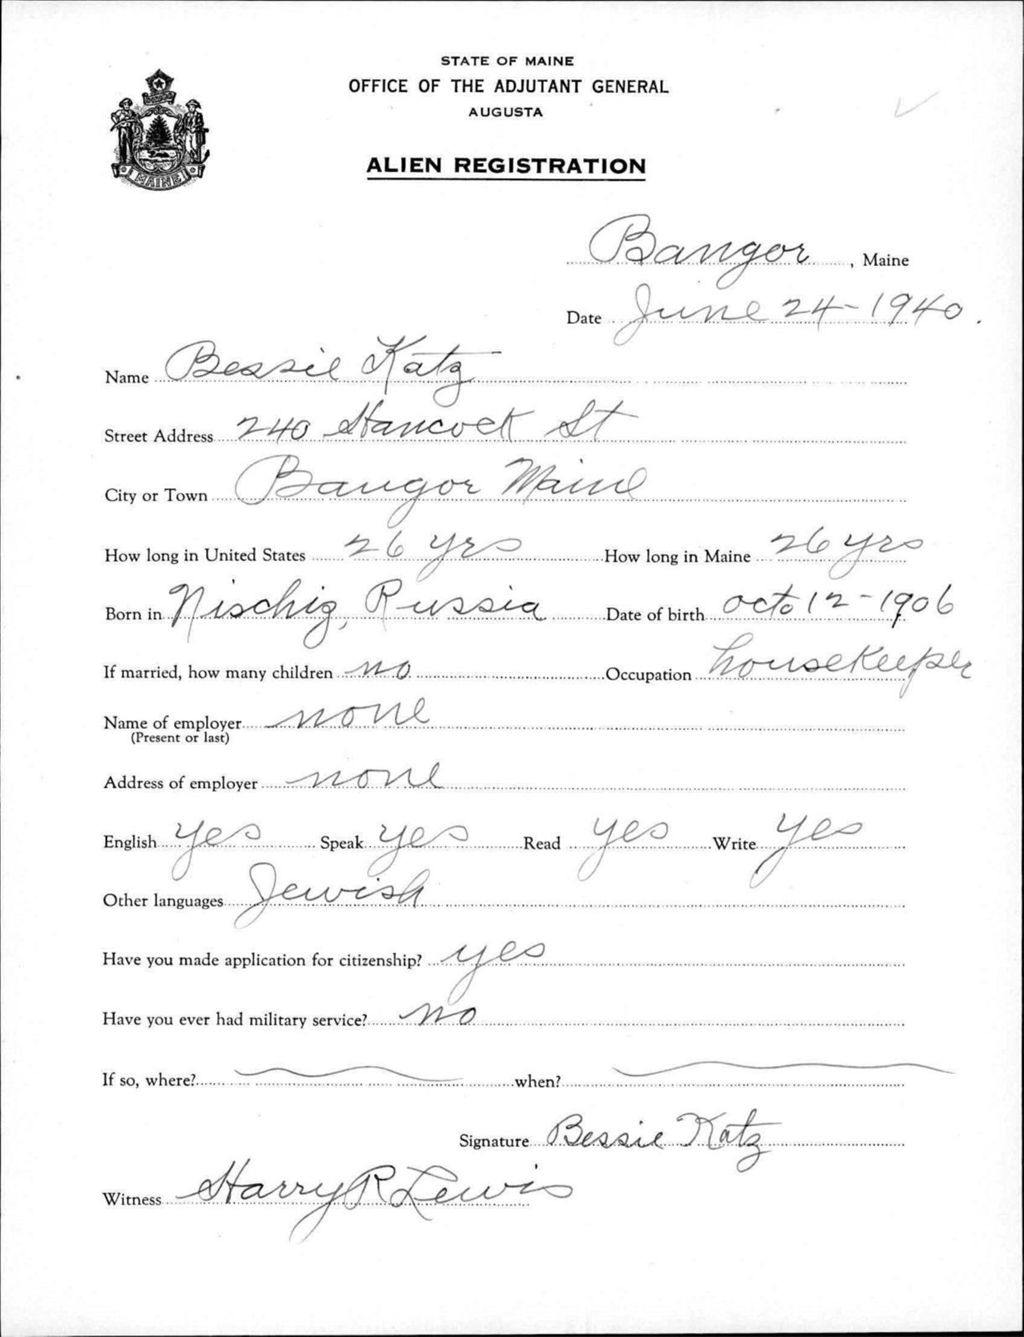 STATE OF MAINE
OFFICE OF THE ADJUTANT GENERAL
AUGUSTA
MAINE
ALIEN REGISTRATION
Bangor, Maine
Date June 24-1940.
Name Bessie Katz
Street Address 240 Hancock St
City or Town Bangor Maine
How long in United States 26 yrs How long in Maine 26 yrs
Born in Nischig, Russia Date of birth Oct. 12-1906
If married, how many children no Occupation housekeeper
Name of employer none
(Present or last)
Address of employer none
English yes Speak yes Read yes Write yes
Other languages Jewish
Have you made application for citizenship? yes
Have you ever had military service? no
If so, where? when?
Signature Bessie Katz
Witness Harry R Lewis